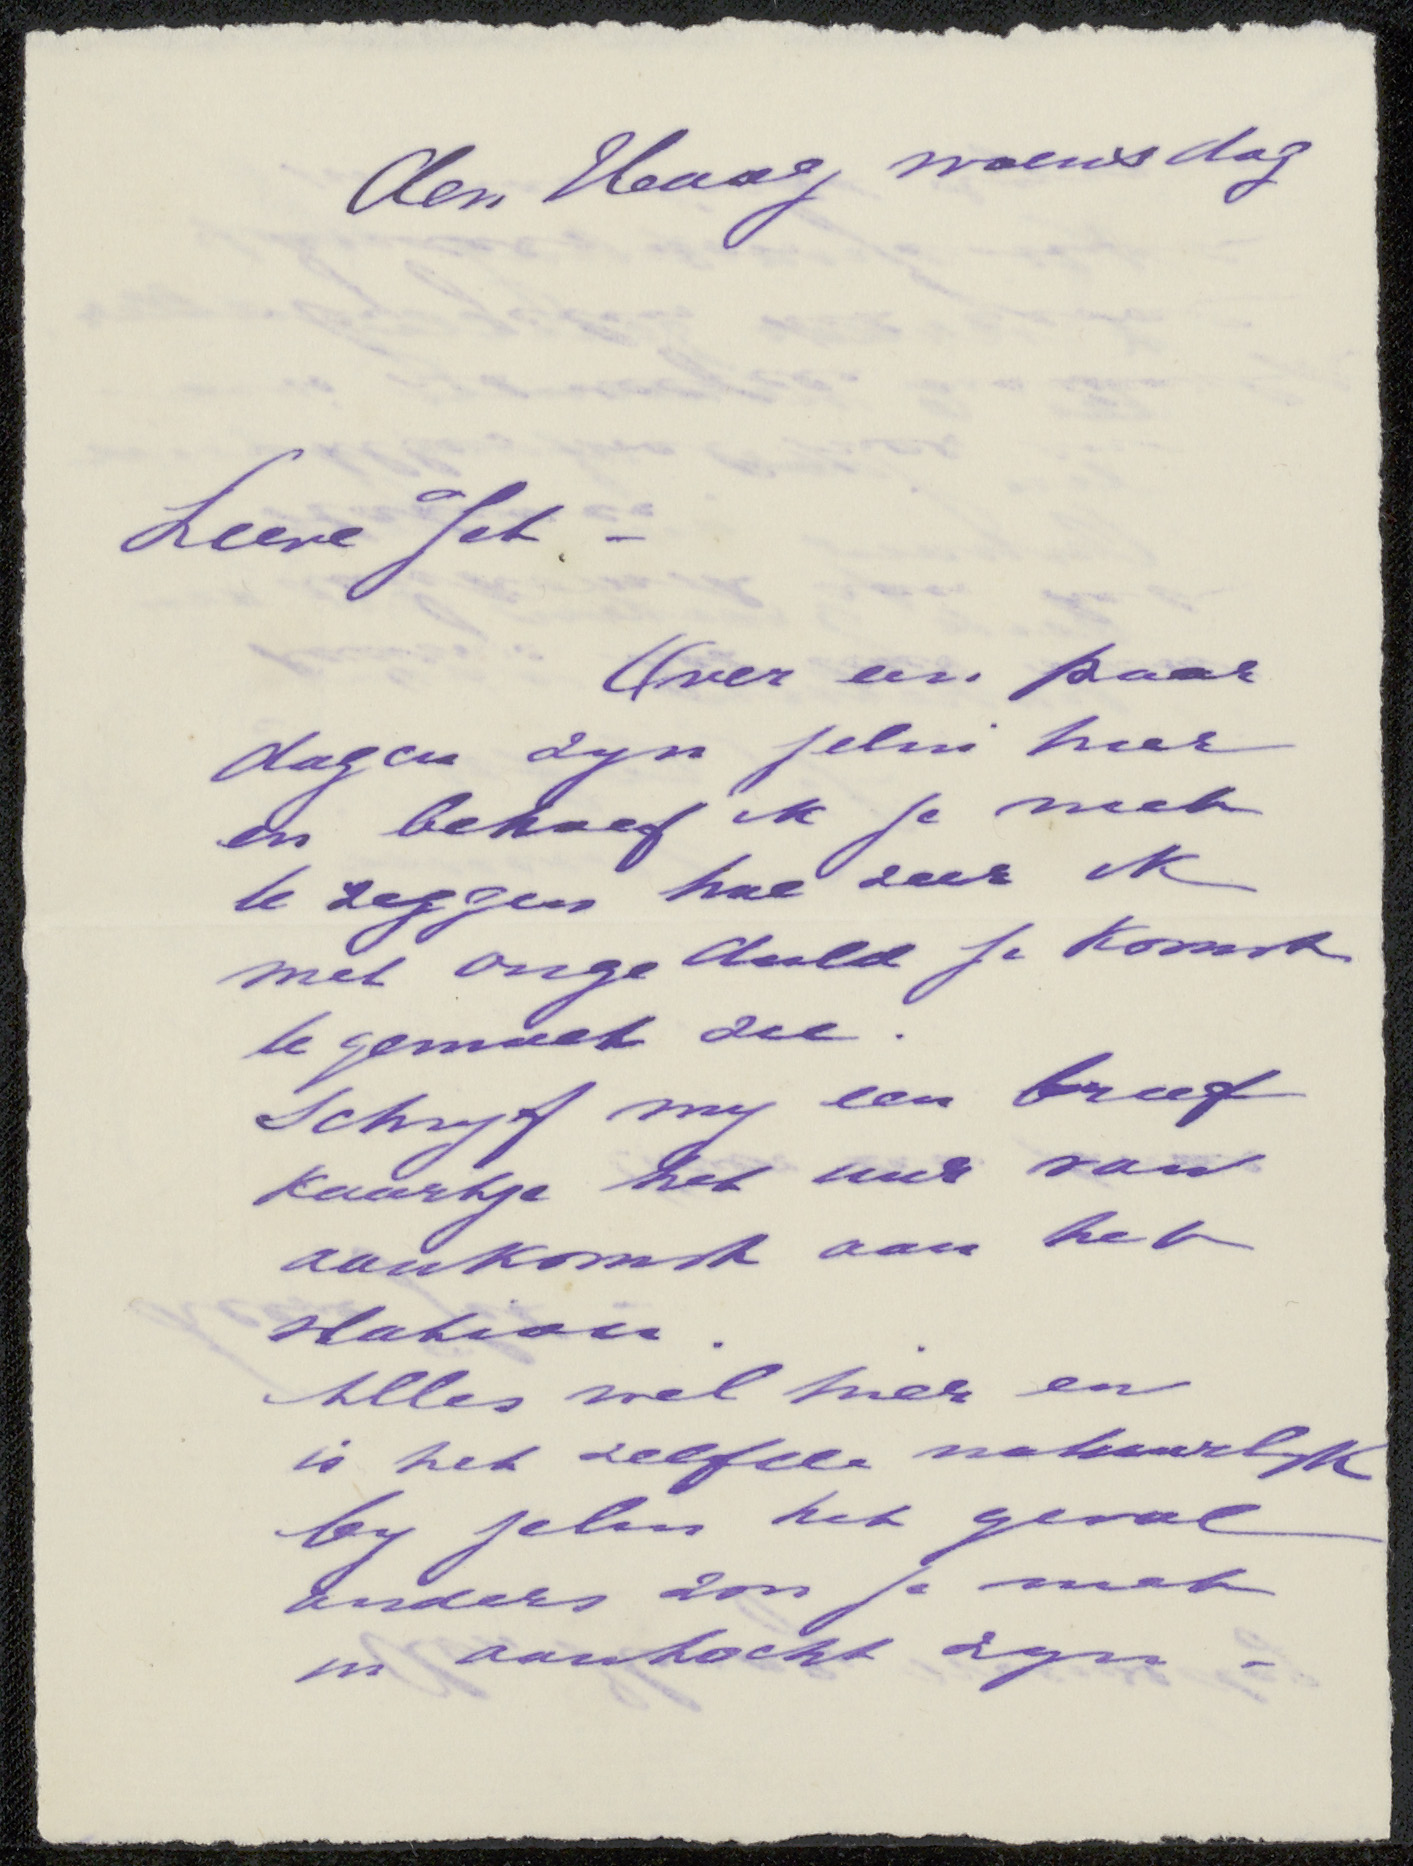 den Haag, woensdag
Lieve Jet –
Over een paar
dagen zyn jelui hier
en behoef ik je niet
te zeggen hoe zeer ik
met ongeduld je komst
te gemoet zie.
Schryf my een brief
kaartje het uur van
aankomst aan het
station.
Alles wel hier en
is het zelfde natuurlyk
by jelui het geval
anders zou je niet
in aantocht zyn –